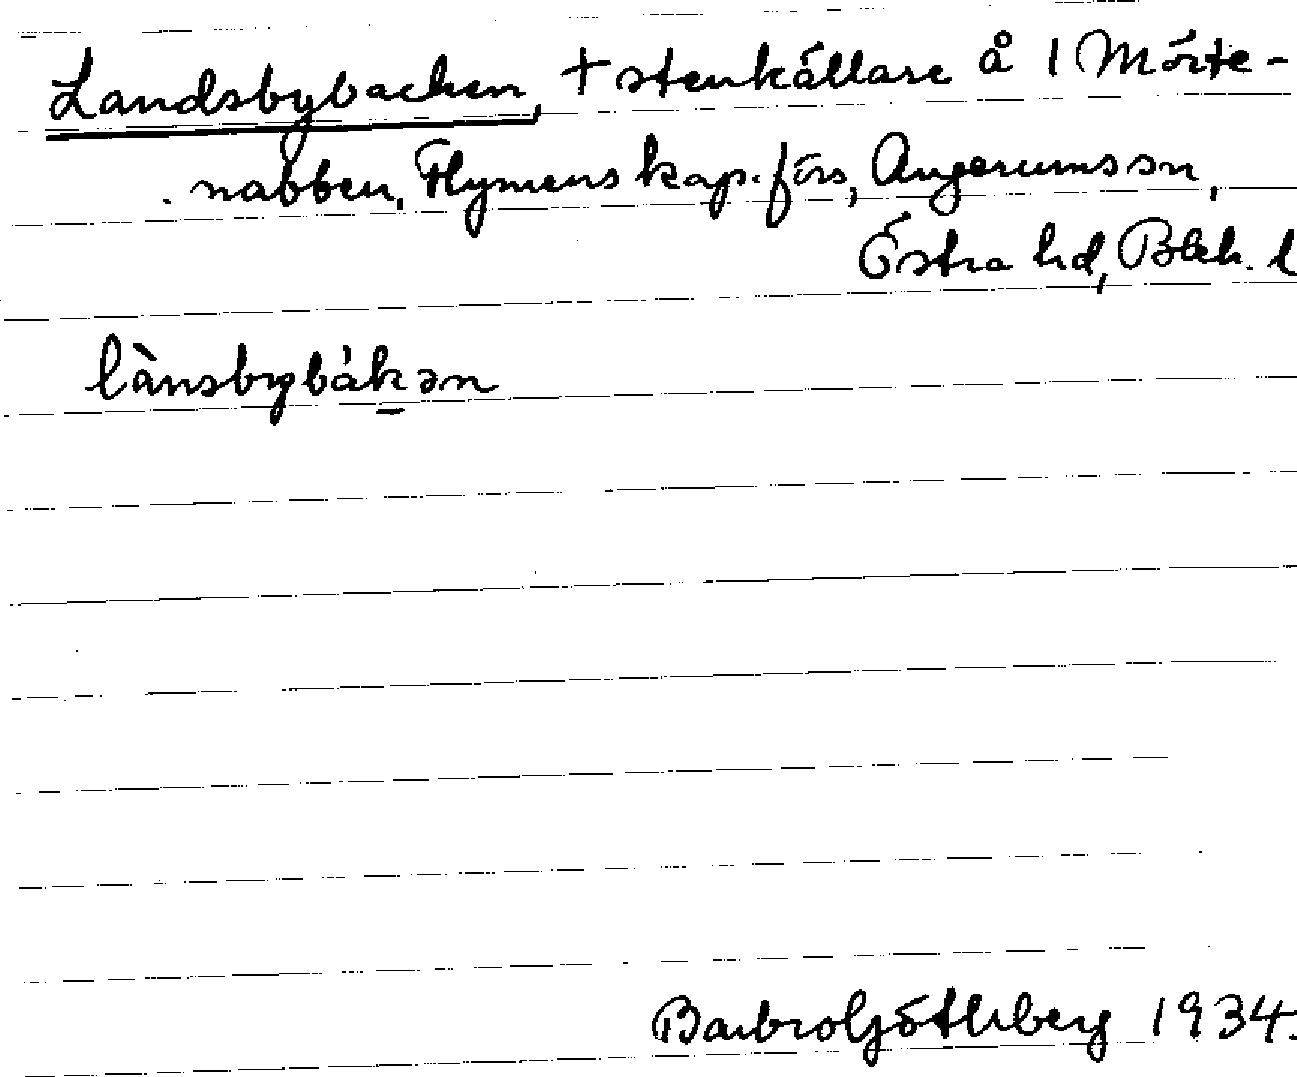 Landsbybacken, + stenkällare å 1 Mörte-
nabben, Flymens kap. förs, Augerums sn,
Östra hd, Blek. l
lànsbybák̲ən
Barbro Göthberg 1934.